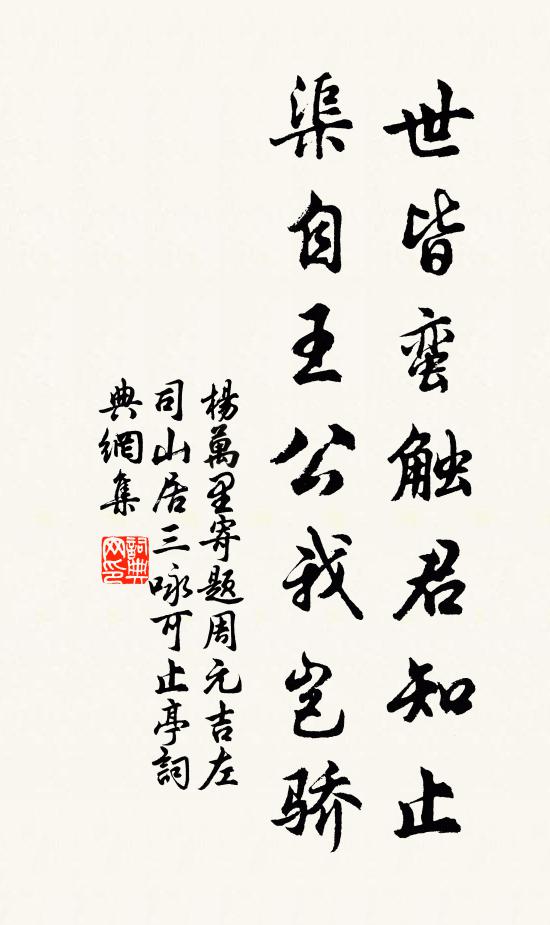 世皆蛮触君知止
渠自王公我岂骄
楊萬里寄題周元吉左
司山居三咏可止亭詞
典網集
詞典
网印